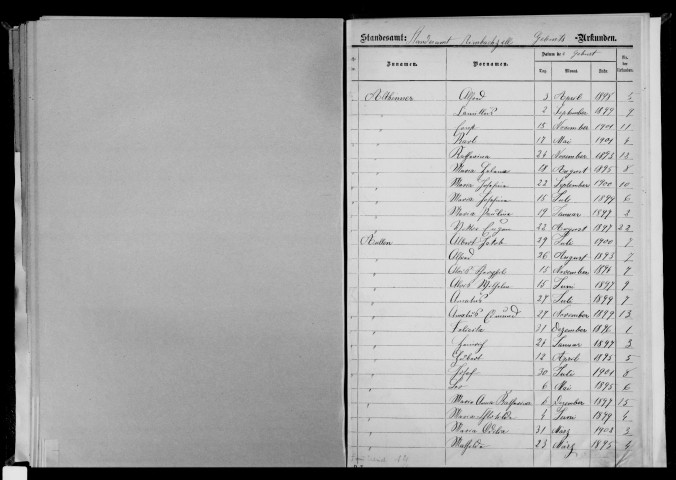 Standesamt: Standesamt Rimbachzell Geburts-Urkunden.
Zunamen. Vornamen. Datum der Geburt No. der Urkunden.
Tag. Monat. Jahr.
Altheimer Alfred 3 April 1898 5
" 2 September 1899 9
" Josef 15 November 1901 11
" Karl 17 Mai 1901 6
" Katharina 24 November 1893 13
" Maria Helena 18 August 1895 8
" Maria Josefina 23 September 1900 10
" Maria Josefina 15 Juli 1899 6
" Maria Paulina 19 Januar 1897 2
" Viktor Eugen 22 August 1897 22
Albert Jakob 29 Juli 1900 7
" Alfred 26 August 1893 7
" Alois Joseph 15 November 1896 9
" Alois Wilhelm 15 Juni 1897 9
" Amatus 29 Juli 1899 7
" Amatus Edmund 29 November 1899 13
" 31 Dezember 1896 1
" Heinrich 24 Januar 1897 3
" Hubert 12 April 1895 5
" Josef 30 Juli 1901 8
" Leo 6 Mai 1895 6
" Maria Anna Katharina 6 Dezember 1897 15
" Maria Mathilde 4 Juni 1899 4
" Maria Odilia 31 März 1902 3
" Mathilde 23 März 1895 4